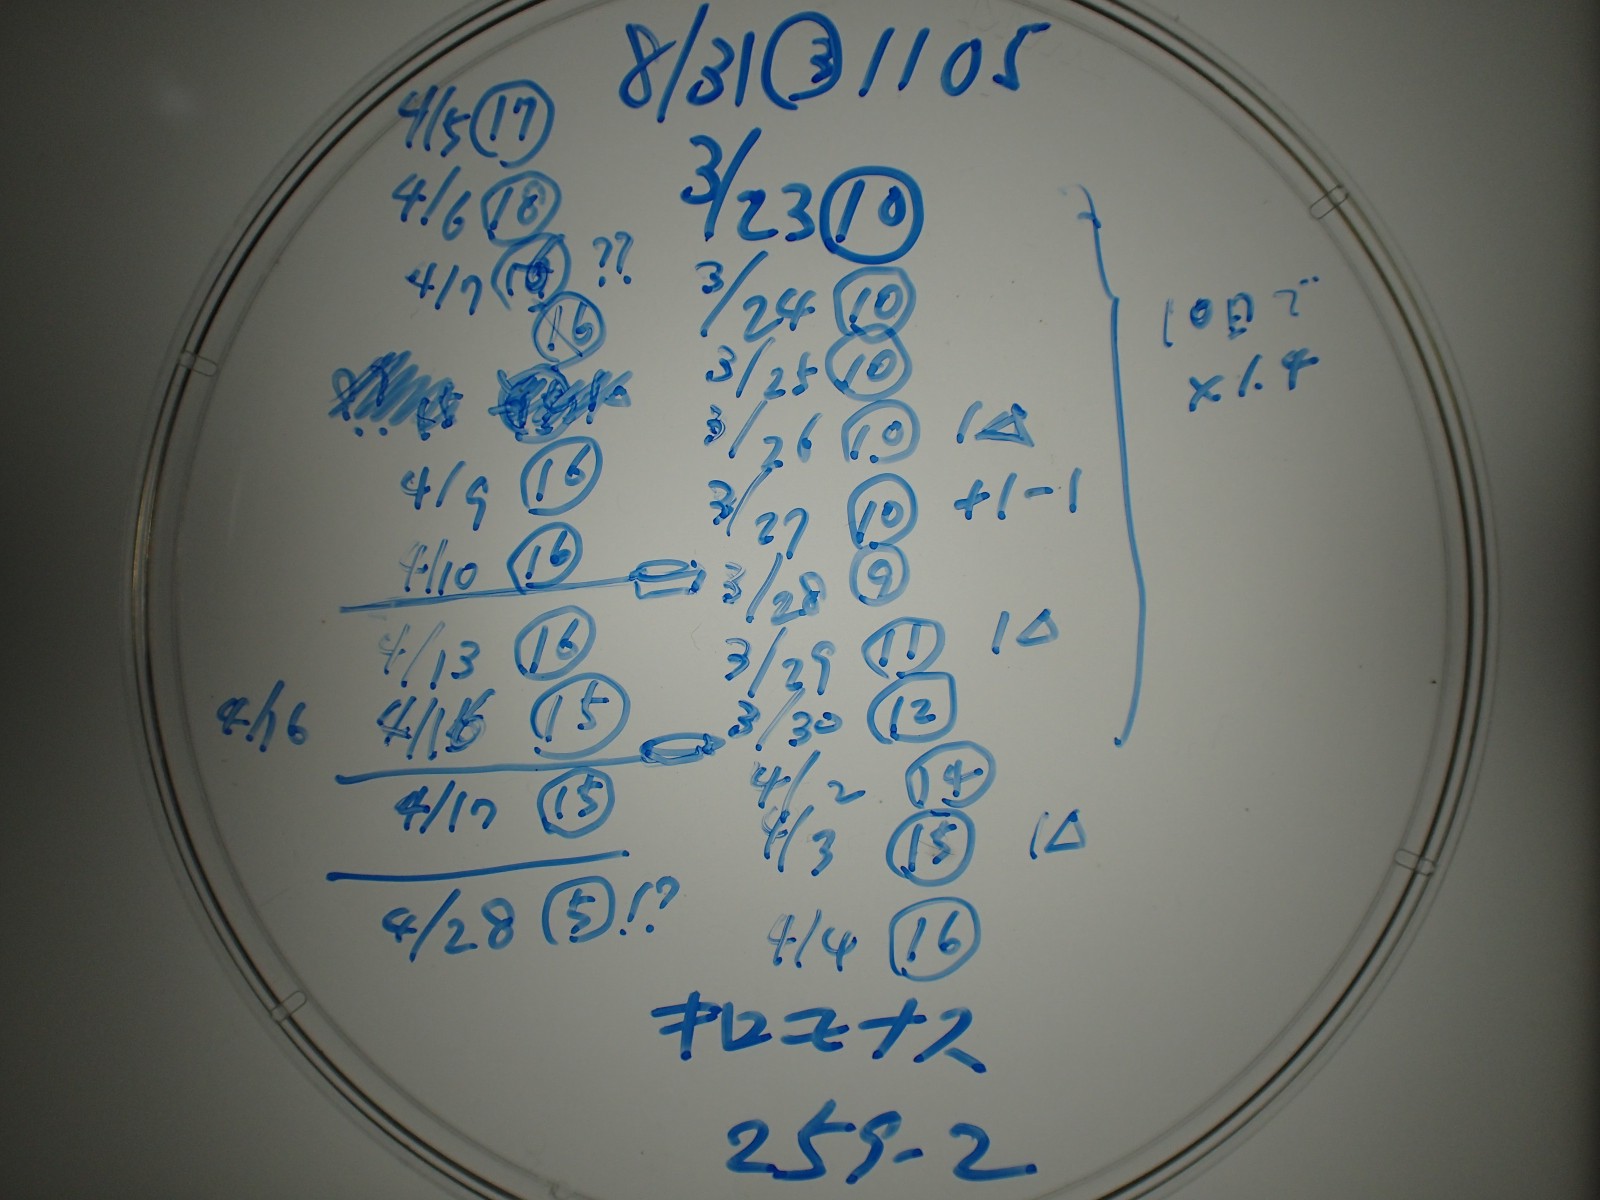 8/31 ③ 1105
3/23 ⑩
3/24 ⑩
3/25 ⑩
3/26 ⑩ 1△
3/27 ⑩ +1-1
3/28 ⑨
3/29 ⑪ 1△
3/30 ⑫
4/2 ⑭
4/3 ⑮ 1△
4/4 ⑯
10日で
×1.4
4/5 ⑰
4/6 ⑱
4/7 ??
⑯
4/9 ⑯
4/10 ⑯
4/13 ⑯
4/16 ⑮
4/17 ⑮
4/28 ⑤!?
キロエナス
259-2